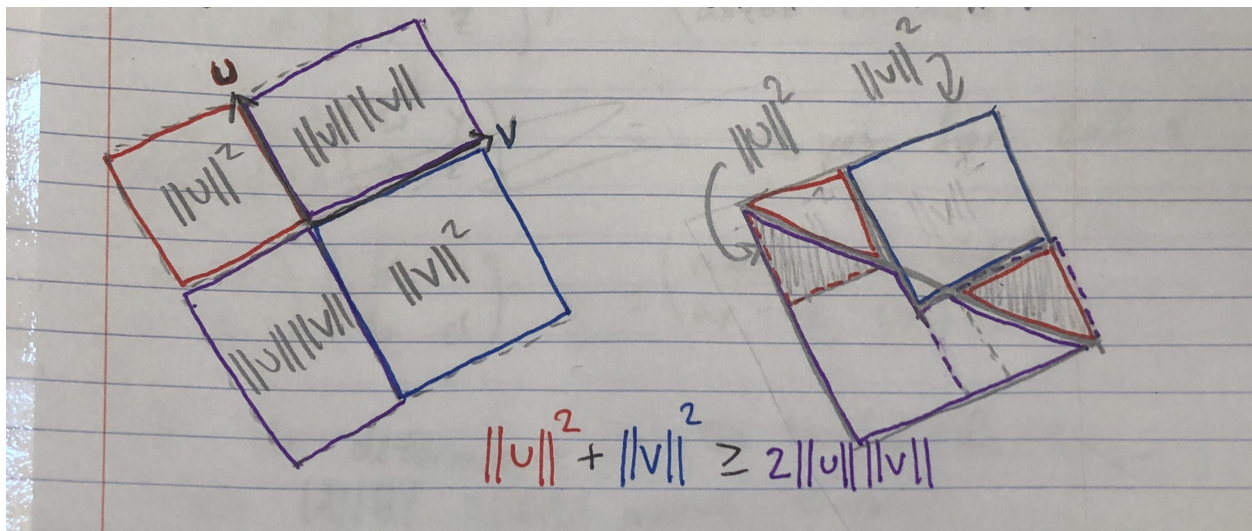 U
V
||u||²
||u|| ||v||
||u|| ||v||
||v||²
||u||²
||v||²
||u||² + ||v||² ≥ 2||u|| ||v||